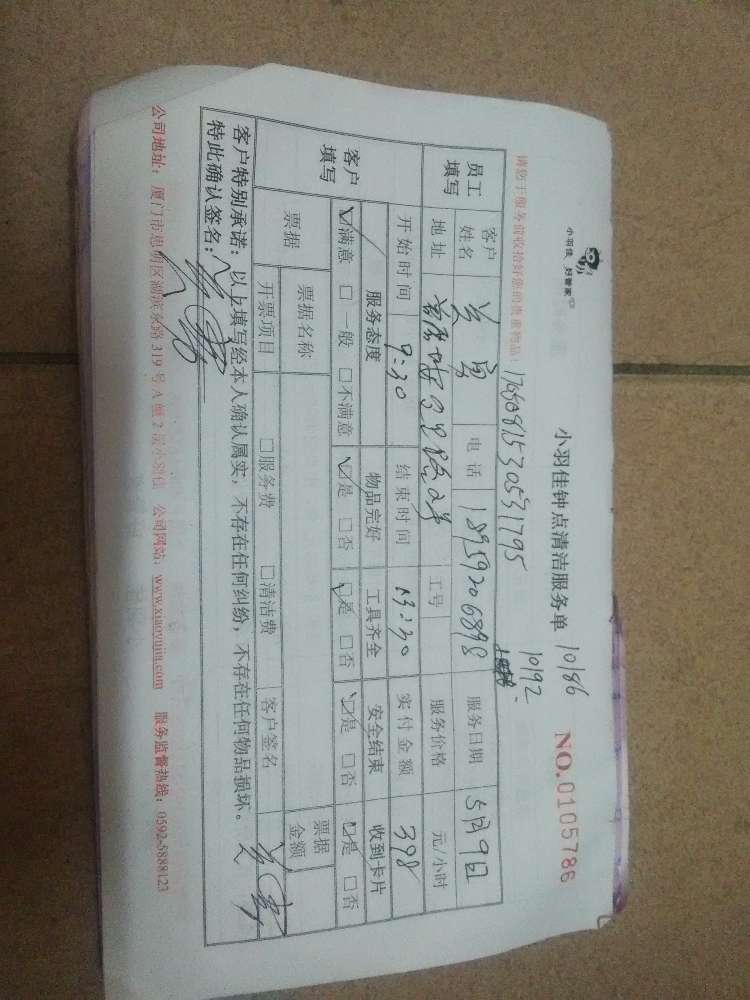 小羽佳 好管家
小羽佳钟点清洁服务单 10186
10192
NO.0105786
请您于服务前收拾好您的贵重物品!
员工填写 客户姓名 电话 18959206898 服务日期 5月9日
地址 工号 服务价格 元/小时
客户填写 开始时间 9:30 结束时间 13:30 实付金额 398
服务态度 物品完好 工具齐全 安全结束 收到卡片
☑满意 □一般 □不满意 ☑是 □否 ☑是 □否 ☑是 □否 ☑是 □否
票据 票据名称 票据金额
开票项目 □服务费 □清洁费 客户签名
客户特别承诺:以上填写经本人确认属实,不存在任何纠纷,不存在任何物品损坏。
特此确认签名:
公司地址:厦门市思明区湖滨东路319号A幢2层小羽佳 公司网站:www.xiaoyujia.com 服务监督热线:0592-5888123